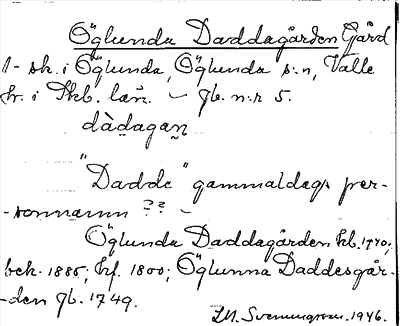 Öglunda Daddagården Gård
1- sk. i Öglunda, Öglunda s:n, Valle
hr. i Skb. län. – Jb. n:r 5.
dàdagan
"Dadde" gammaldags per-
-sonnamn ?? –
Öglunda Daddagården kb. 1740;
bek. 1885; hf. 1800; Öglunna Daddesgår-
-den jb. 1749.
Svenungsson. 1946.